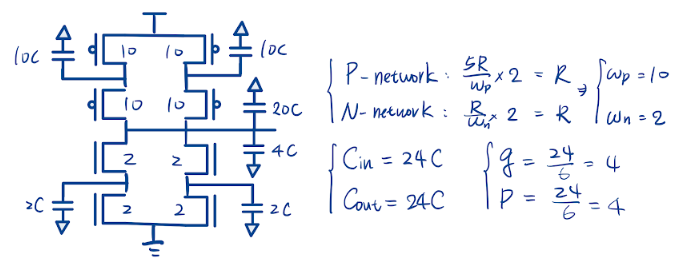 10C 10 10 10C
10 10 20C
2 2 4C
2C 2 2 2C
P-network : 5R/Wp × 2 = R, Wp = 10
N-network : R/Wn × 2 = R Wn = 2
Cin = 24C g = 24/6 = 4
Cout = 24C P = 24/6 = 4